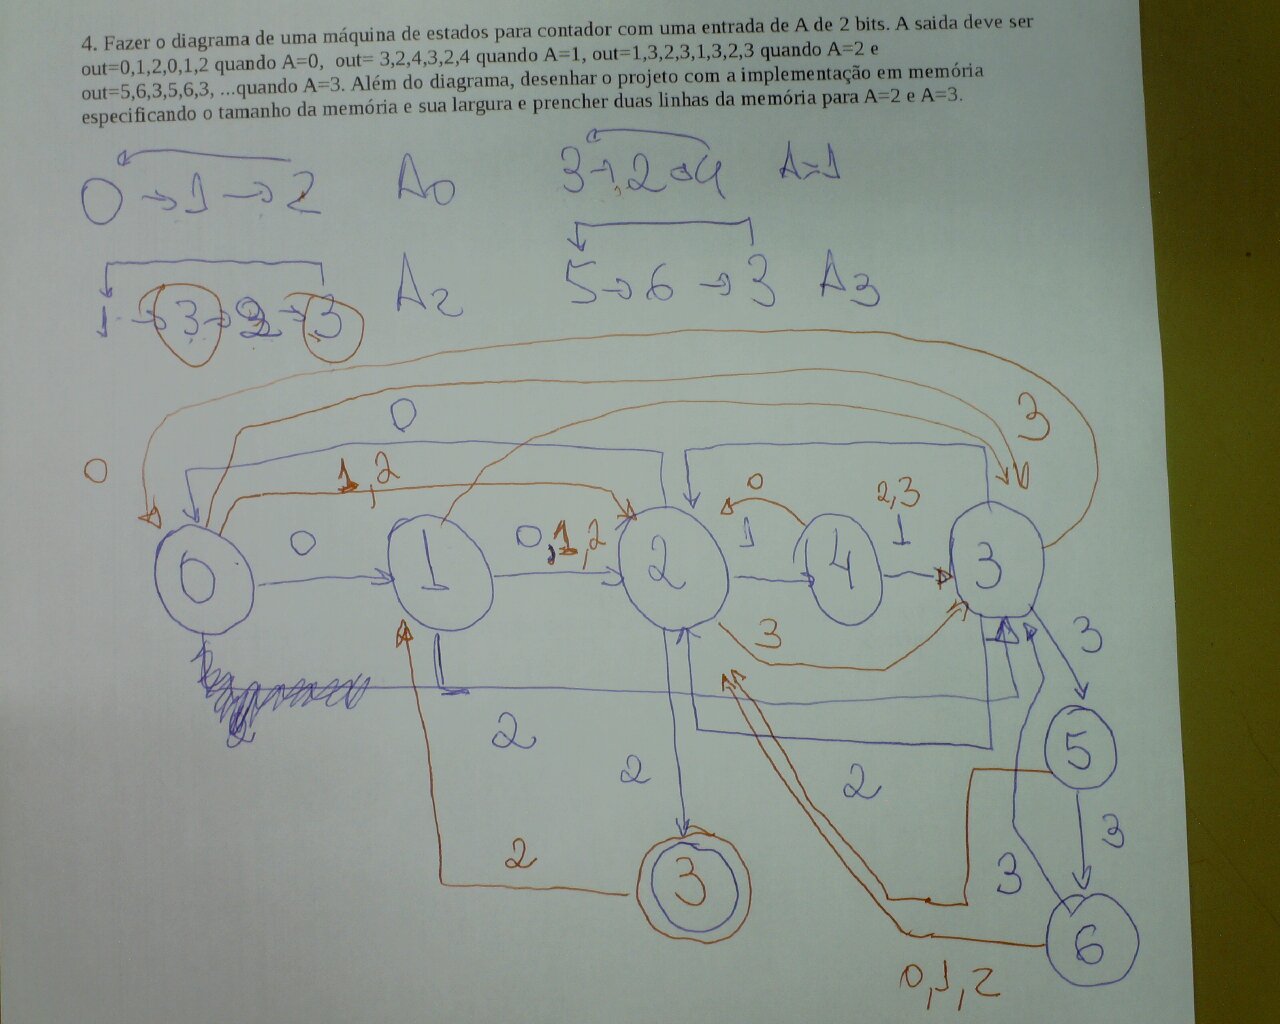 4. Fazer o diagrama de uma máquina de estados para contador com uma entrada de A de 2 bits. A saida deve ser
out=0,1,2,0,1,2 quando A=0, out= 3,2,4,3,2,4 quando A=1, out=1,3,2,3,1,3,2,3 quando A=2 e
out=5,6,3,5,6,3, ...quando A=3. Além do diagrama, desenhar o projeto com a implementação em memória
especificando o tamanho da memória e sua largura e prencher duas linhas da memória para A=2 e A=3.
0 → 1 → 2 A0 3 → 2 → 4 A=1
1 → 3 → 2 → 3 A2 5 → 6 → 3 A3
0 3
0 1,2 0 2,3
0 0,1,2 1 1
0 1 2 4 3
3 3
2 2 2 5
3
2 3 3
6
0,1,2